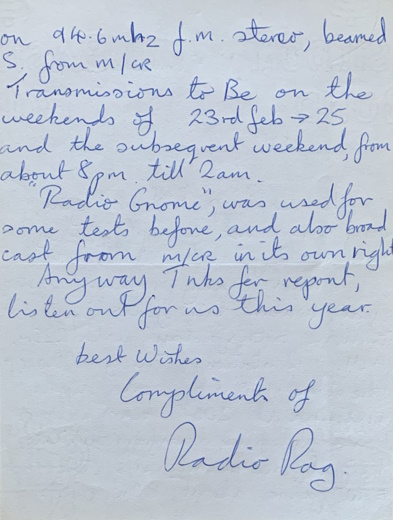 on 94.6mhz f.m. stereo, beamed
S. from m/cr
Transmissions to Be on the
weekends of 23rd feb → 25
and the subsequent weekend, from
about 8pm till 2am.
"Radio Gnome", was used for
some tests before, and also broad
cast from m/cr in its own right
Anyway Tnks for report,
listen out for us this year.
best Wishes
Compliments of
Radio Rag.